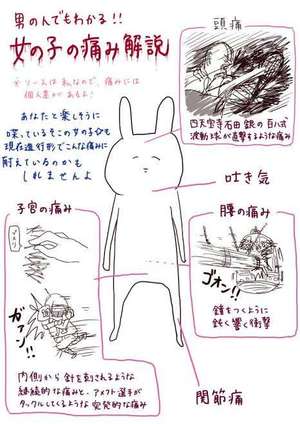 男のんでもわかる!!
女の子の痛み解説
※ソースは私なので、痛みには
個人差があるよ!
あなたと楽しそうに
喋っているそこの女の子も
現在進行形でこんな痛みに
耐えているのかも
しれませんよ
頭痛
四天宝寺石田銀の百八式
波動球が直撃するような痛み
吐き気
子宮の痛み
ガァン!!
内側から針を刺されるような
継続的な痛みと、アメフト選手が
タックルしてくるような突発的な痛み
腰の痛み
ゴオン!!
鐘をつくように
鈍く響く衝撃
関節痛